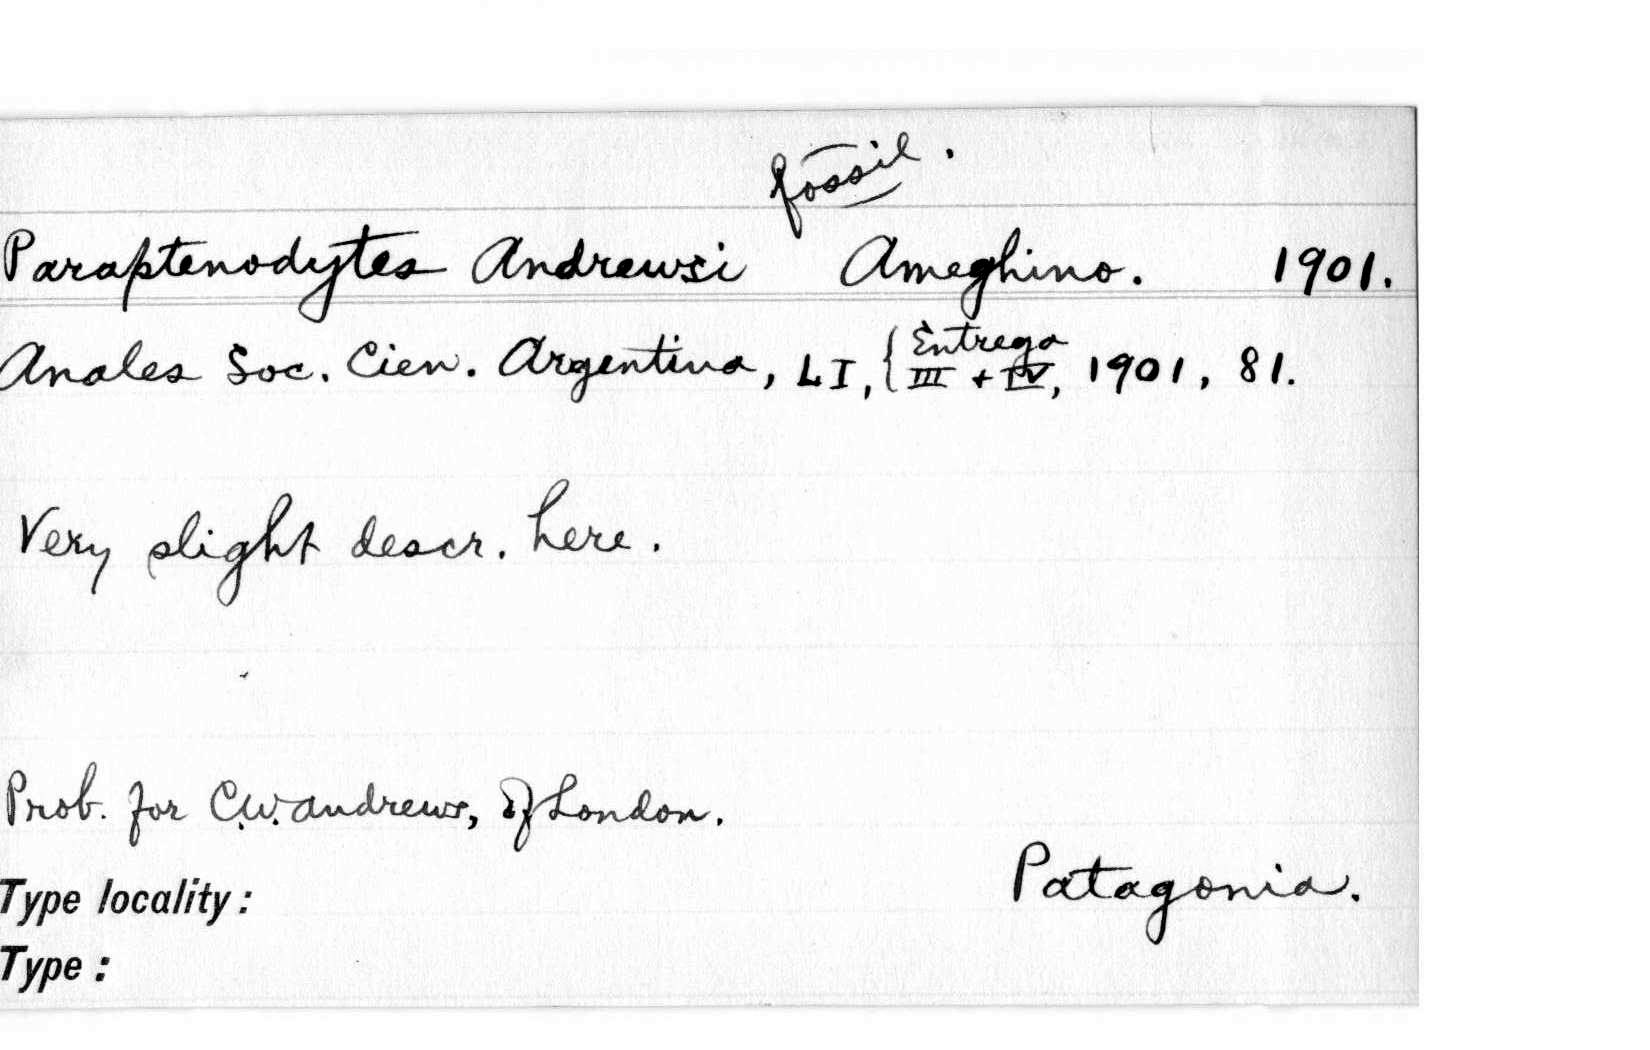 fossil.
Paraptenodytes Andrewsi Ameghino. 1901.
Anales Soc. Cien. Argentina, LI, { Entrega
III + IV, 1901, 81.
Very slight descr. here.
Prob. for C.W. Andrews, of London.
Patagonia.
Type locality:
Type: